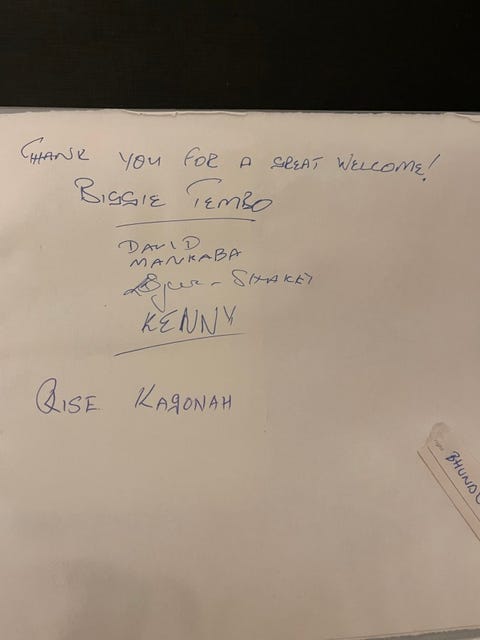 THANK YOU FOR A GREAT WELCOME!
BIGGIE TEMBO
DAVID
MANKABA
SHAKEY
KENNY
RISE KAGONAH
BHUND